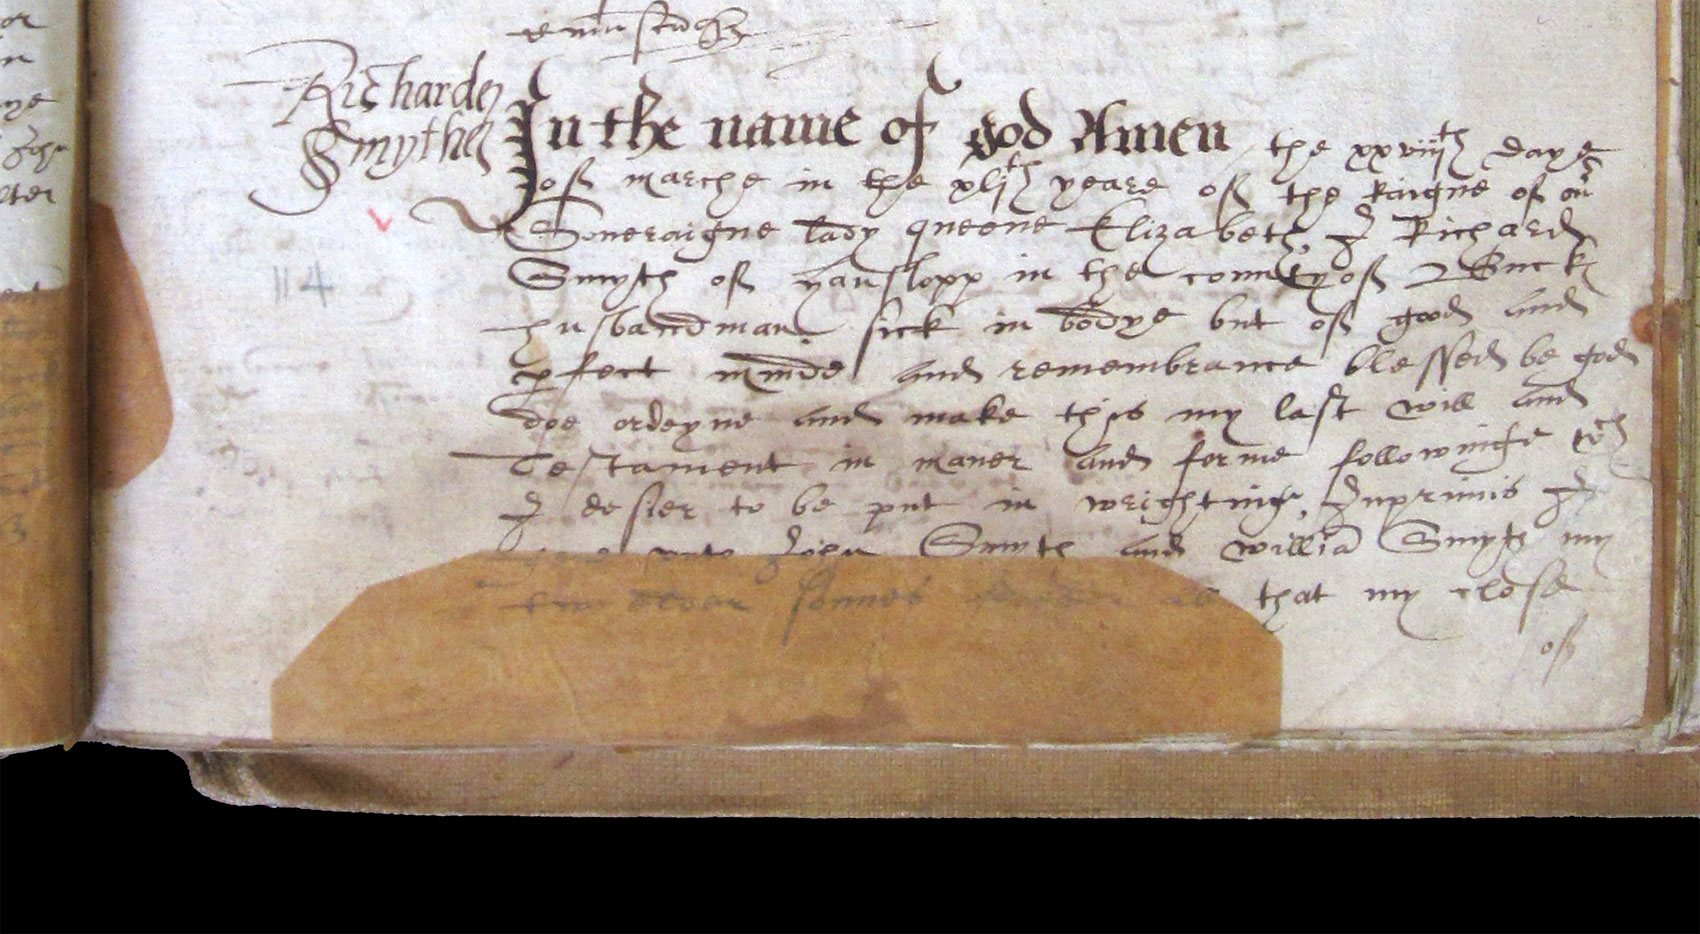 Richarde
Smythe
In the name of god Amen the xxviijth daye
of marche in the xljth yeare of the Raigne of our
Soueraigne lady queene Elizabeth, I Richard
Smyth of hanslopp in the county of Buck
husbandman sick in bodye but of good and
perfect minde and remembrance blessed be god
doe ordeyne and make this my last will and
Testament in maner and forme followinge wch
I desier to be put in wrightinge, Inprimis I
vnto John Smyth and william Smyth my
sonnes that my close
of
114